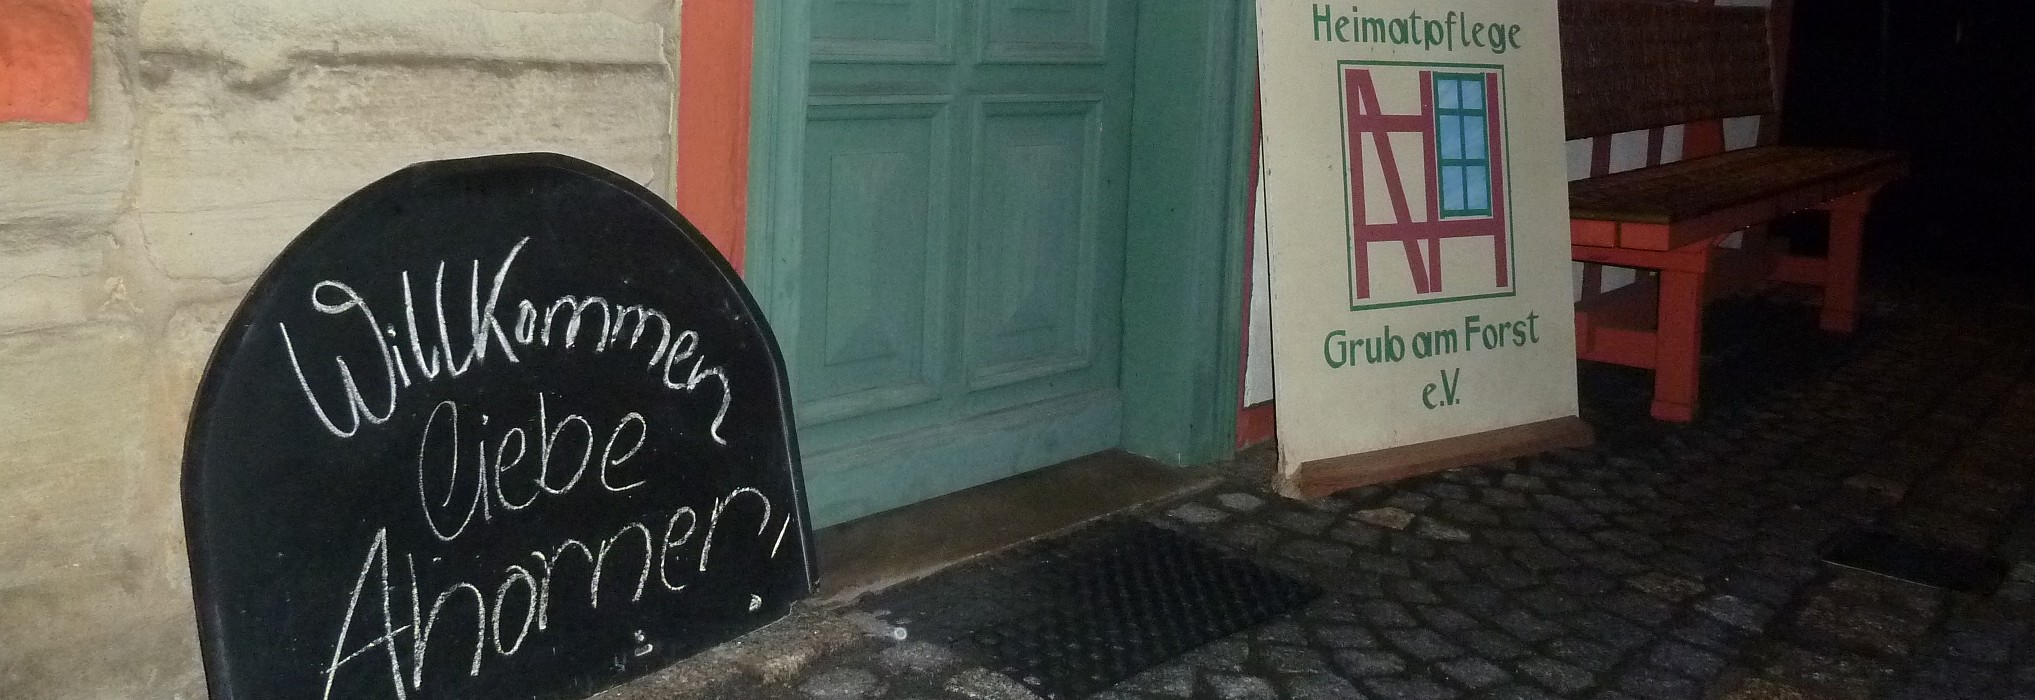 Willkommen
liebe
Ahorner!
Heimatpflege
Grub am Forst
e.V.